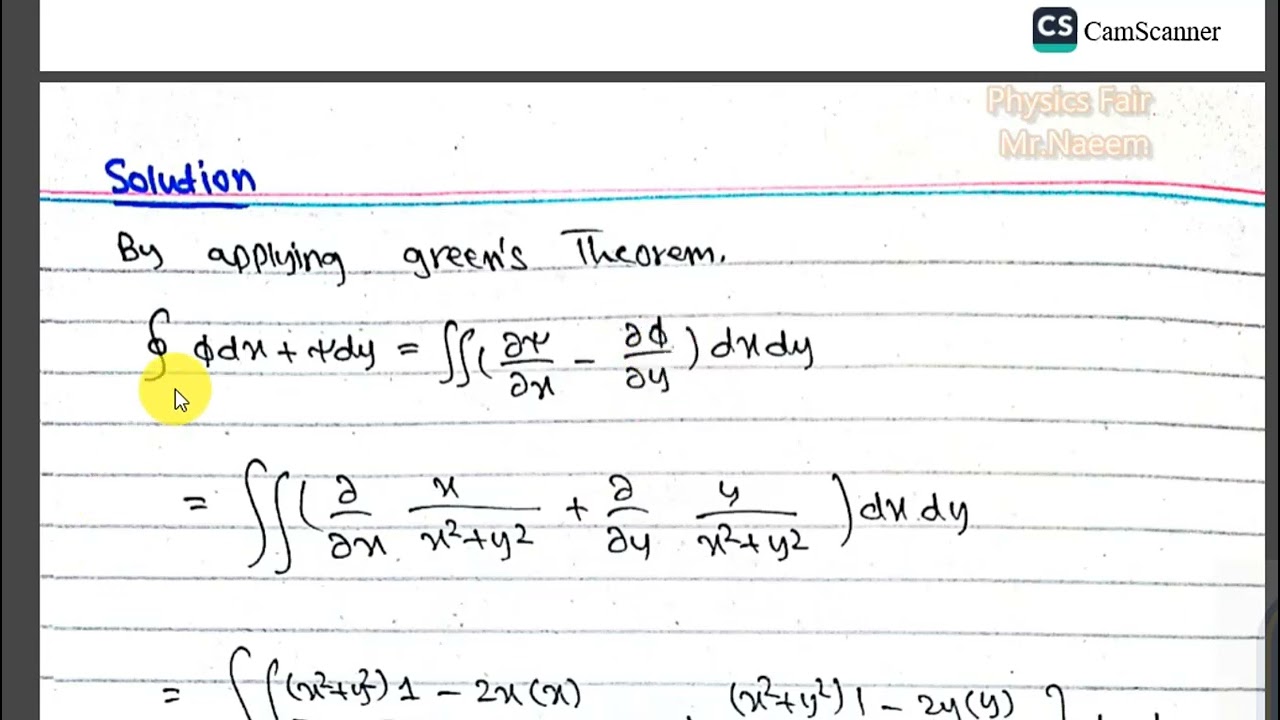 CS CamScanner
Physics Fair
Mr.Naeem
Solution
By applying green's Theorem.
∮ ϕdx + ψdy = ∬(∂ψ/∂x − ∂ϕ/∂y) dxdy
= ∬(∂/∂x x/x²+y² + ∂/∂y y/x²+y²) dx dy
= ∬ (x²+y²) 1 − 2x(x) (x²+y²) 1 − 2y(y)